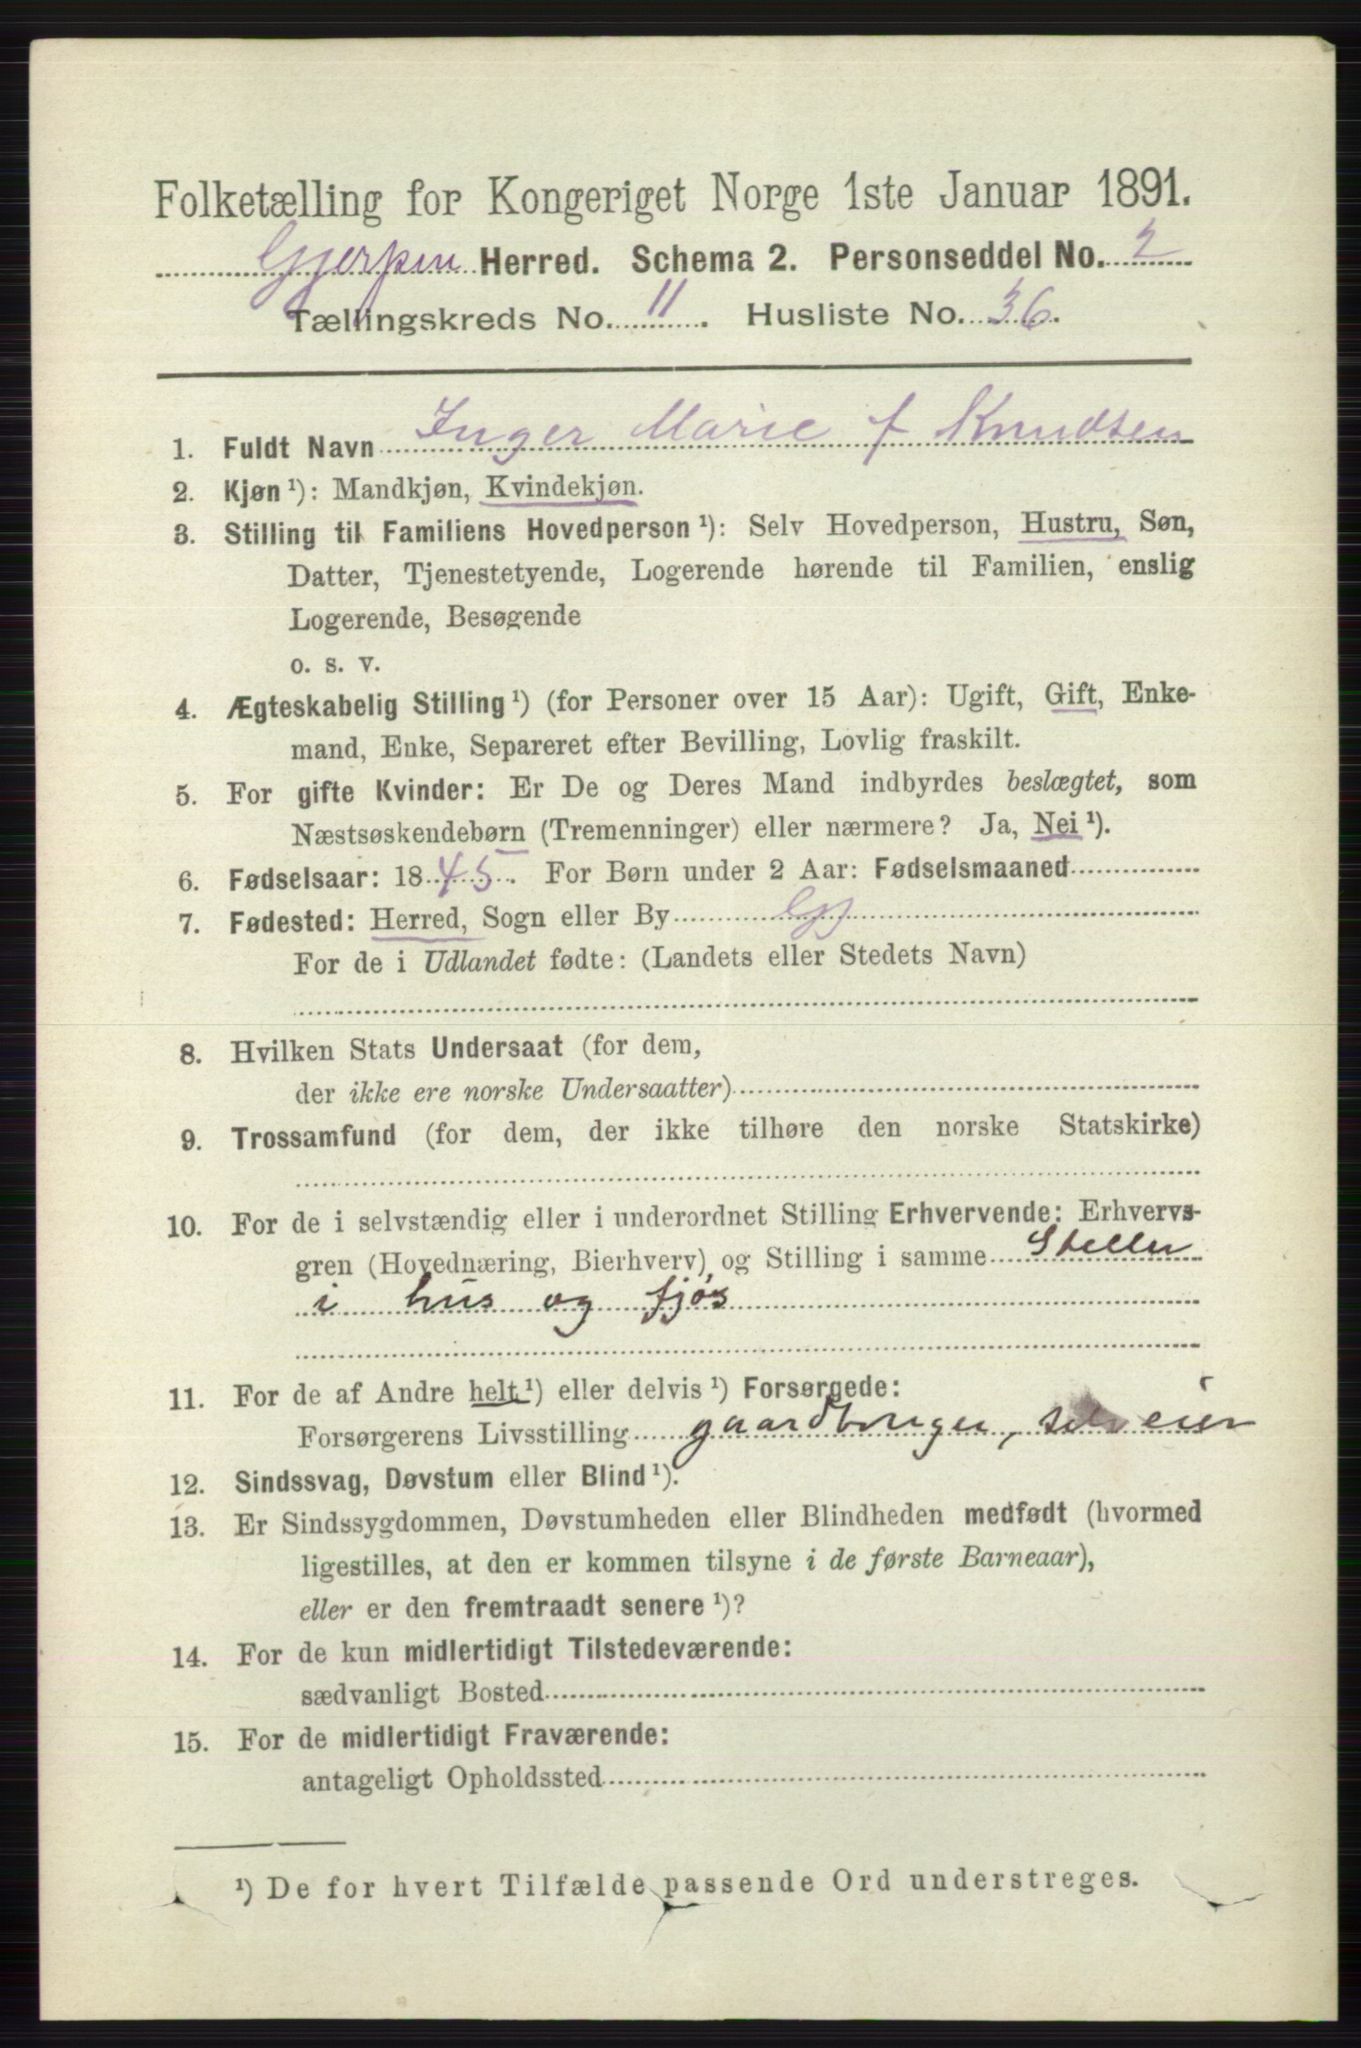 Folketælling for Kongeriget Norge 1ste Januar 1891.
Gjerpen Herred. Schema 2. Personseddel No. 2
Tællingskreds No. 11. Husliste No. 36.
1. Fuldt Navn Inger Marie f Knudsen
2. Kjøn ¹): Mandkjøn, Kvindekjøn.
3. Stilling til Familiens Hovedperson ¹): Selv Hovedperson, Hustru, Søn,
Datter, Tjenestetyende, Logerende hørende til Familien, enslig
Logerende, Besøgende
o. s. v.
4. Ægteskabelig Stilling ¹) (for Personer over 15 Aar): Ugift, Gift, Enke-
mand, Enke, Separeret efter Bevilling, Lovlig fraskilt.
5. For gifte Kvinder: Er De og Deres Mand indbyrdes beslægtet, som
Næstsøskendebørn (Tremenninger) eller nærmere? Ja, Nei ¹).
6. Fødselsaar: 1845. For Børn under 2 Aar: Fødselsmaaned
7. Fødested: Herred, Sogn eller By Gj
For de i Udlandet fødte: (Landets eller Stedets Navn)
8. Hvilken Stats Undersaat (for dem,
der ikke ere norske Undersaatter)
9. Trossamfund (for dem, der ikke tilhøre den norske Statskirke)
10. For de i selvstændig eller i underordnet Stilling Erhvervende: Erhvervs-
gren (Hovednæring, Bierhverv) og Stilling i samme Steller
i hus og fjøs
11. For de af Andre helt ¹) eller delvis ¹) Forsørgede:
Forsørgerens Livsstilling gaardbruger, selveier
12. Sindssvag, Døvstum eller Blind ¹).
13. Er Sindssygdommen, Døvstumheden eller Blindheden medfødt (hvormed
ligestilles, at den er kommen tilsyne i de første Barneaar),
eller er den fremtraadt senere ¹)?
14. For de kun midlertidigt Tilstedeværende:
sædvanligt Bosted
15. For de midlertidigt Fraværende:
antageligt Opholdssted
¹) De for hvert Tilfælde passende Ord understreges.